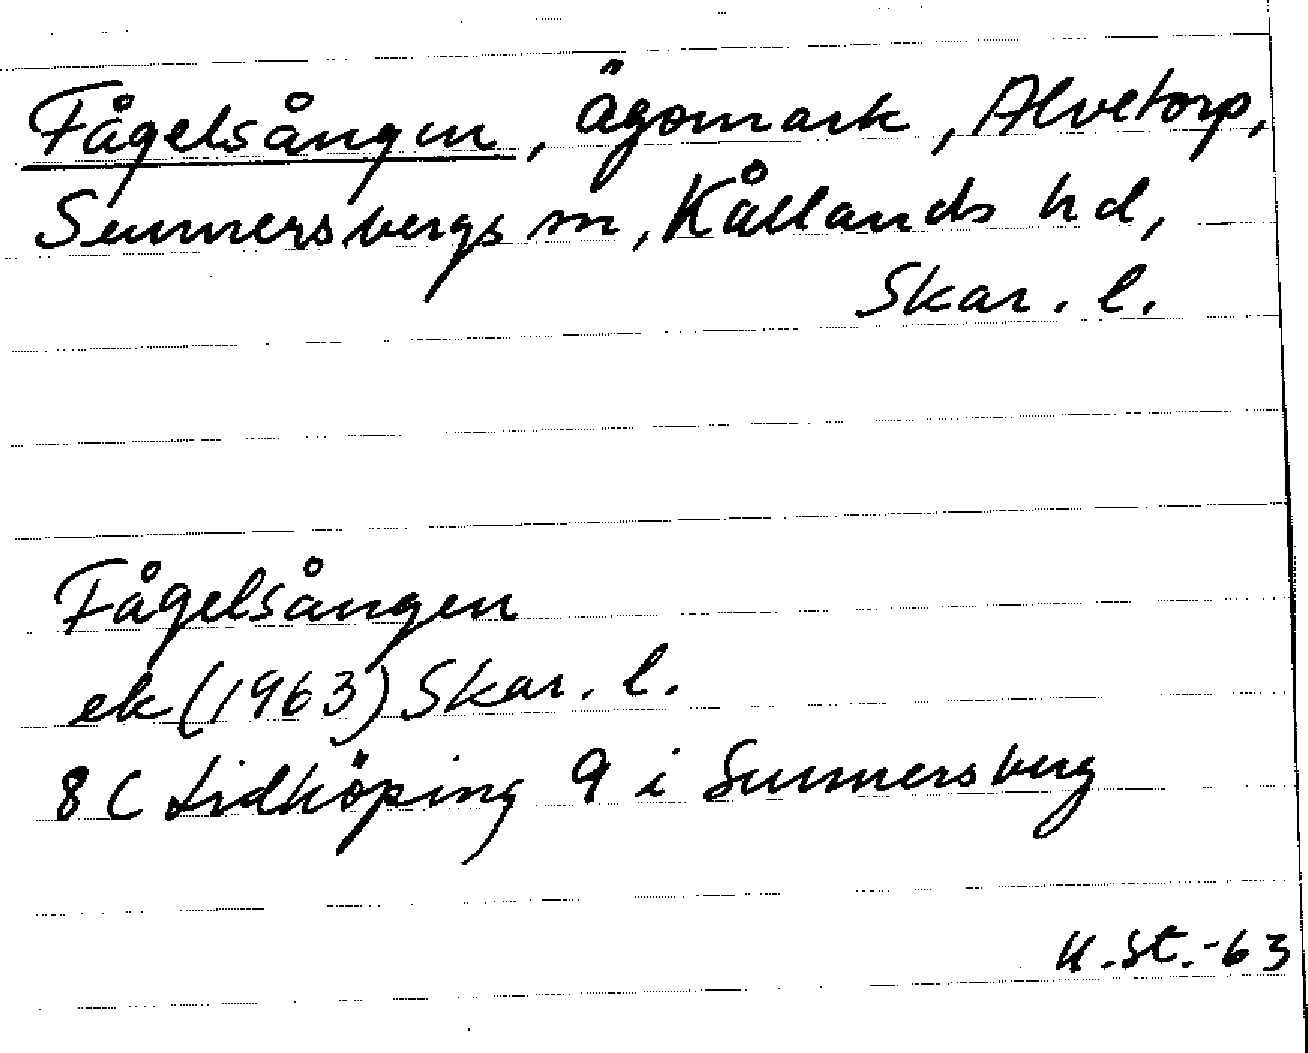 Fågelsången, ägomark, Alvetorp,
Sunnersbergs sn, Kållands hd,
Skar. l.
Fågelsången
ek (1963) Skar. l.
8 C Lidköping 9 i Sunnersberg
U. St. -63